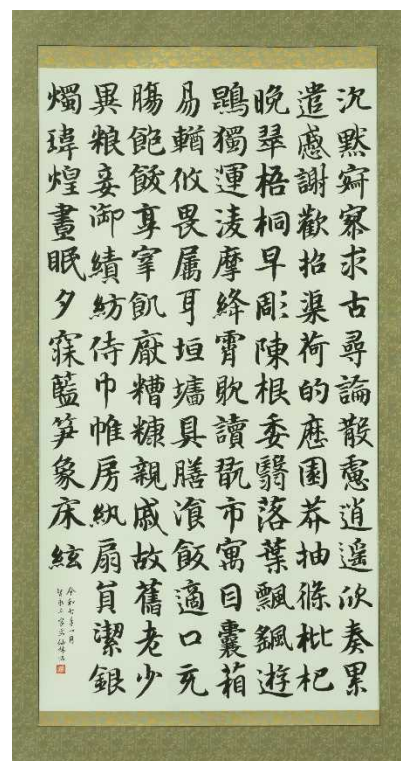 沉默寂寥求古尋論散慮逍遥欣奏累
遣慼謝歡招渠荷的歷園莽抽條枇杷
晚翠梧桐早彫陳根委翳落葉飄颻遊
鵾獨運淩摩絳霄耽讀翫市寓目囊箱
易輶攸畏属耳垣墻具膳湌飯適口充
腸飽飫享宰飢厭糟糠親戚故舊老少
異粮妾御績紡侍巾帷房紈扇員潔銀
燭煒煌晝眠夕寐藍笋象床絃
令和七年一月